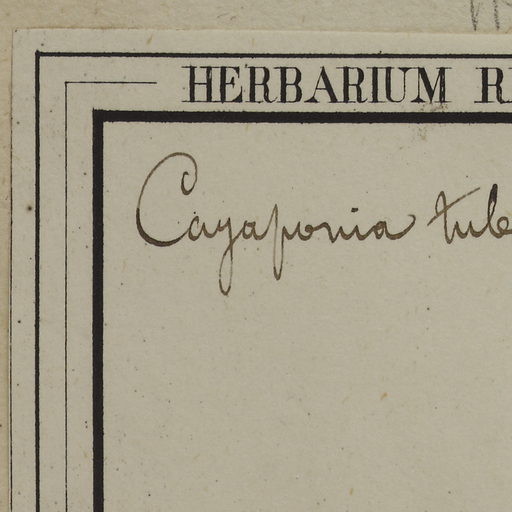 HERBARIUM R
Cayaponia tube